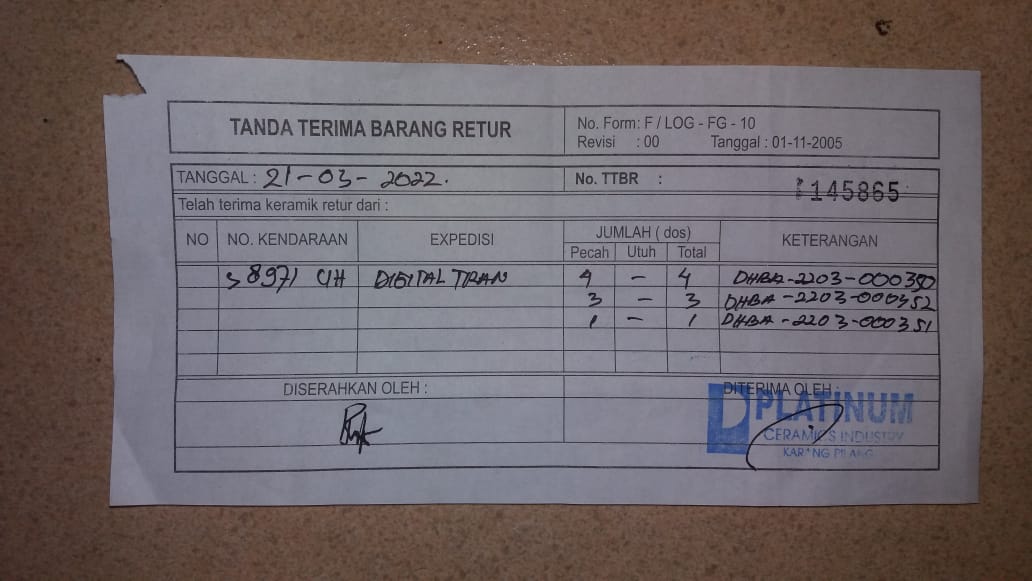 TANDA TERIMA BARANG RETUR
No. Form: F / LOG - FG - 10
Revisi : 00 Tanggal : 01-11-2005
TANGGAL : 21-03-2022.
No. TTBR : 145865
Telah terima keramik retur dari :
NO NO. KENDARAAN EXPEDISI JUMLAH ( dos) KETERANGAN
Pecah Utuh Total
S 8971 UH DIGITAL TRAN 4 - 4 DHBA-2203-000350
3 - 3 DHBA-2203-000352
1 - 1 DHBA-2203-000351
DISERAHKAN OLEH : DITERIMA OLEH :
PLATINUM
CERAMICS INDUSTRY
KARANG PILANG